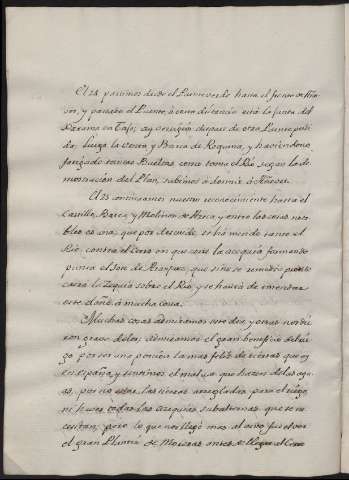 El 24 partimos desde el Puente verde hasta el frente de Aña-
sor, y pasado el Puente, à corta distancia està la Junta del
Xarama en Tajo; ay
luego la Cerca y Barca de Requena, y haviendonos
forzado tantas Bueltas como tome el Rio segun la de-
mostracion del Plan, subimos à dormir à Añover.
El 25 continuamos nuestro reconocimiento hasta el
Castillo, Barca, y Molinos de Azeca y entre las cosas nota-
bles es una, que por descuido, se hà metido tanto el
Rio, contra el Cerro en que corre la azequia formando
punta el Sote de Aranjuez, que si no se remedia presto
caerà la Zequia sobre el Rio, y se havrà de enmendar
este daño à mucha costa.
Muchas cosas admiramos este dia, y otras nos die-
ron grave dolor, admiramos el gran beneficio del rie-
go por ser una porcion la mas feliz de tierras que ay
en España, y sentimos el mal uso que hazen de las agu-
as, por no estar las tierras arregladas para el riego,
ni hechas todas las azequias subalternas que se ne-
cesitan; pero lo que nos llegò mas al alma fue el ver
el gran Plantio de Moreras antes de llegar al Cerro